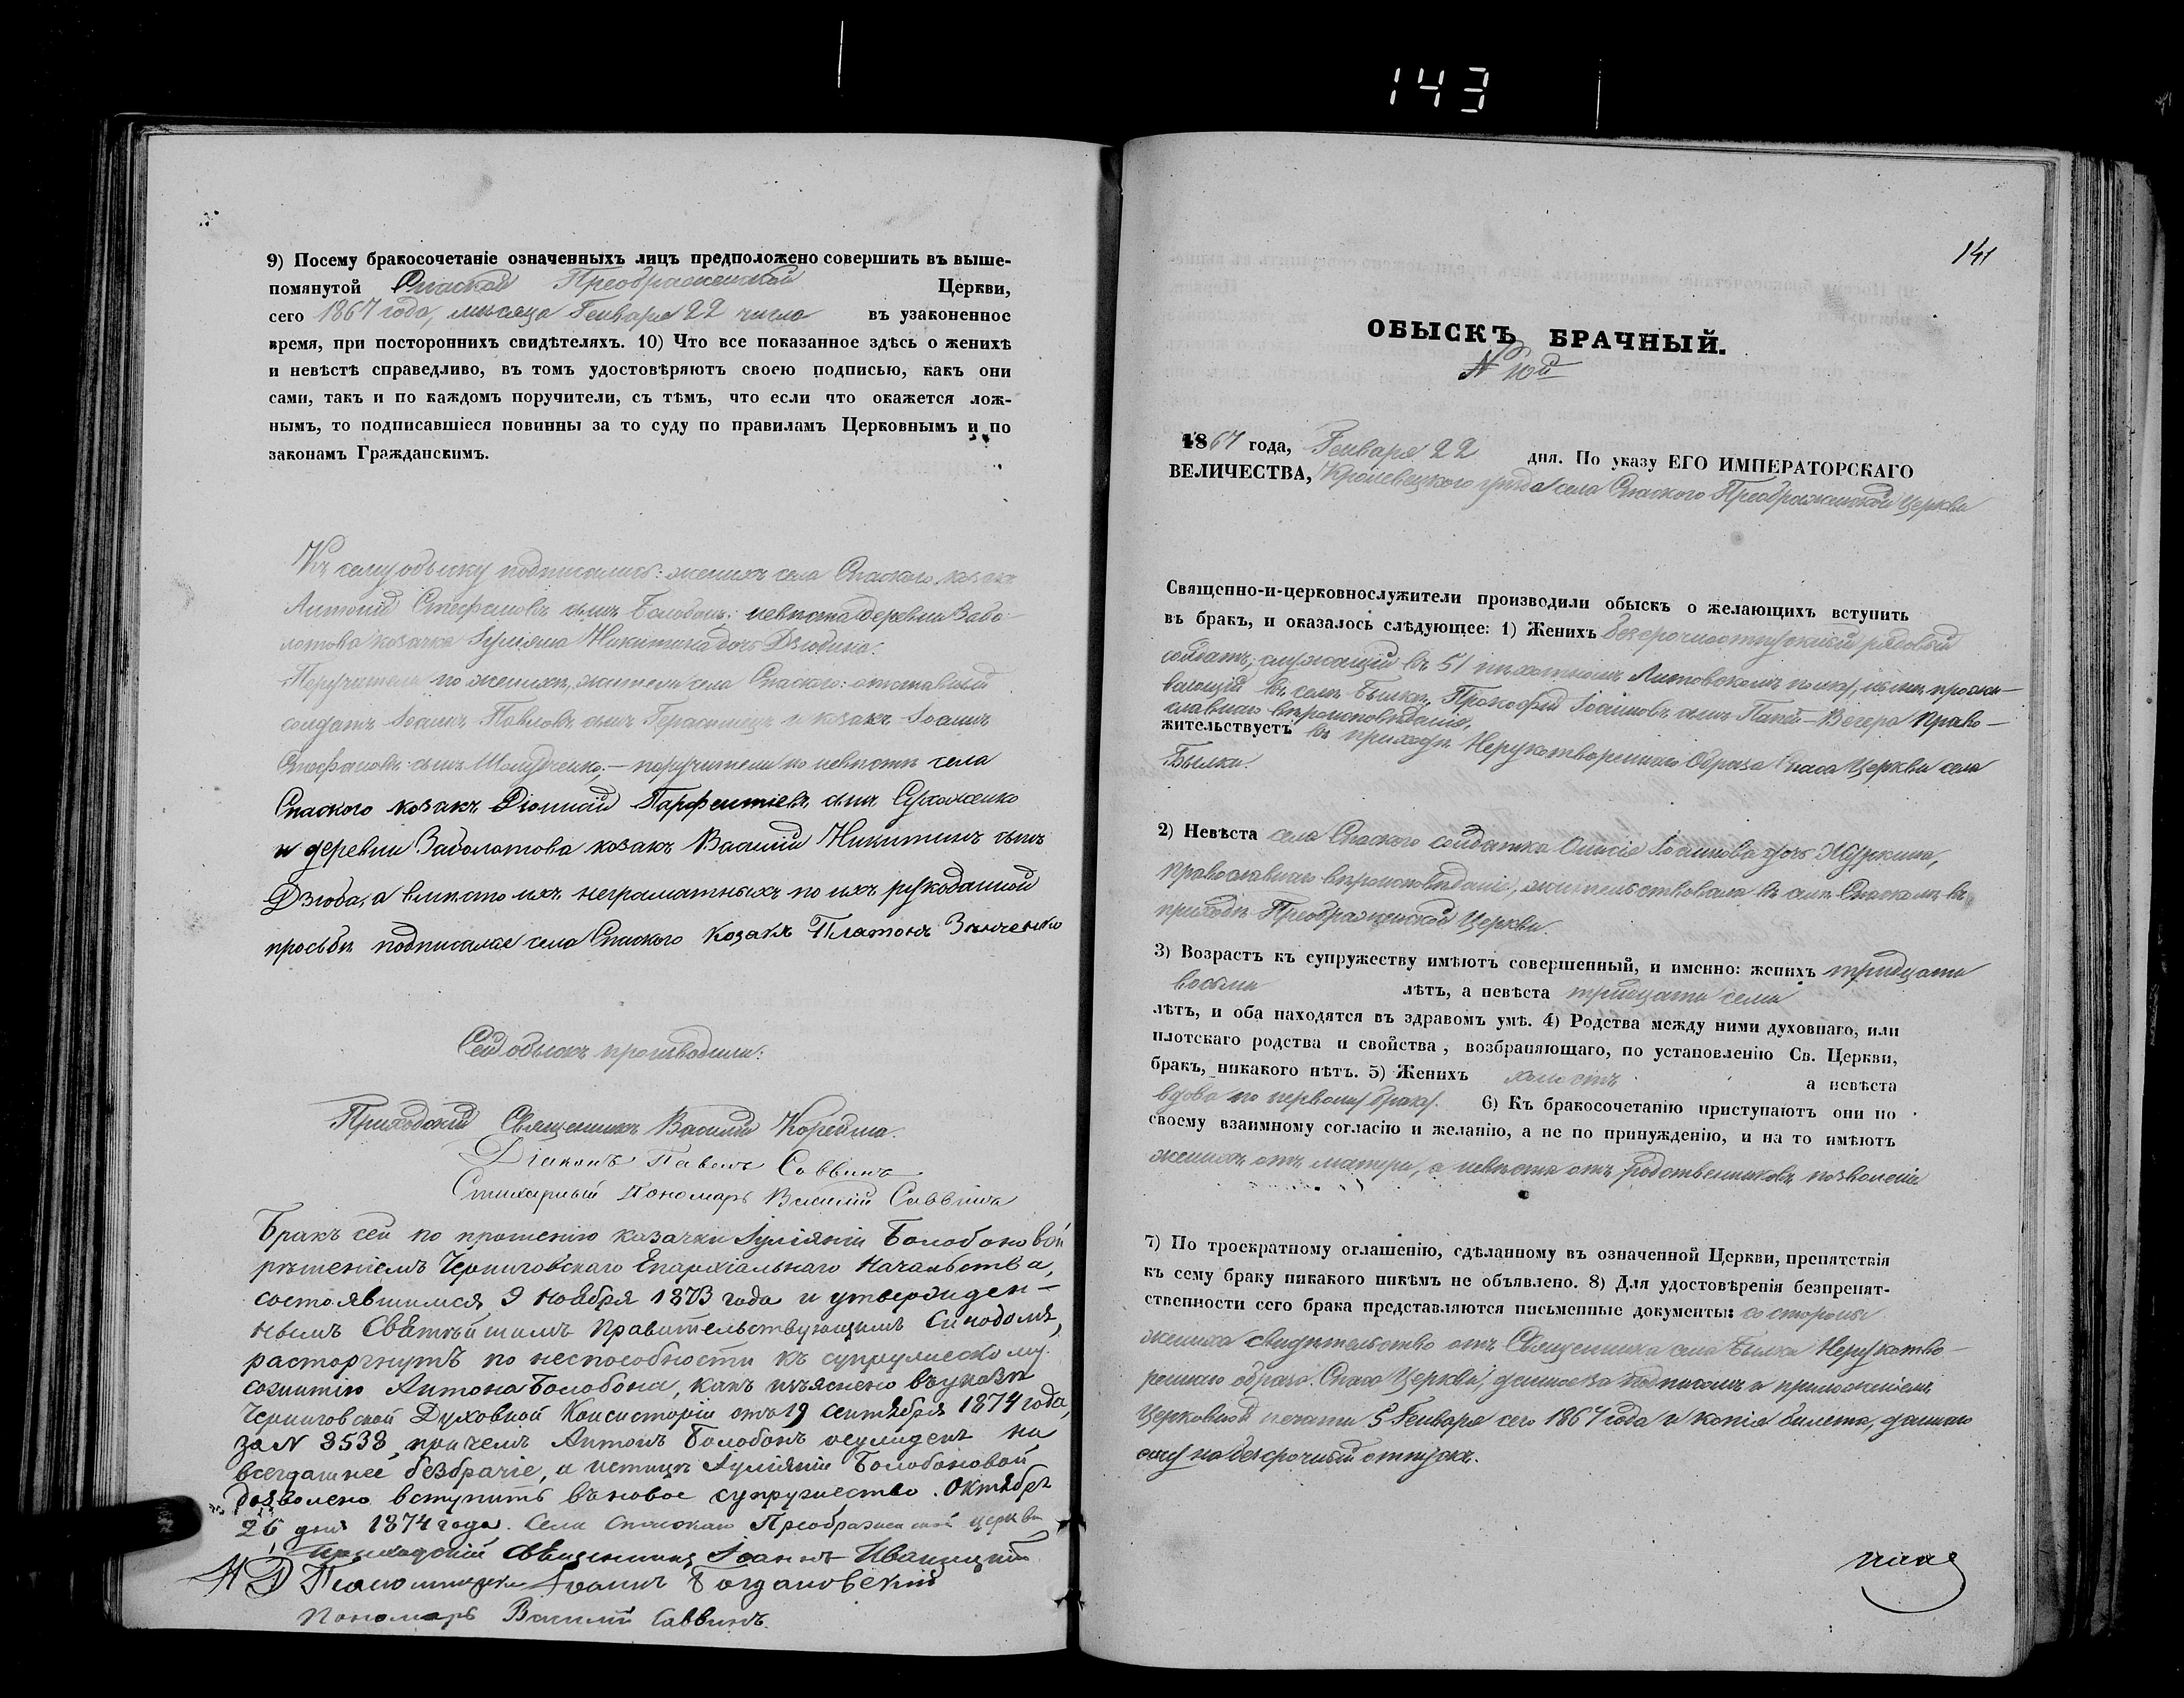 143
9) Посему бракосочетаніе означенныхъ лицъ предположено совершить въ выше-
помянутой Спаской Преображенской Церкви,
сего 1867 года, мѣсяца Генваря 22 числа въ узаконенное
время, при постороннихъ свидѣтеляхъ. 10) Что все показанное здѣсь о женихѣ
и невѣстѣ справедливо, въ томъ удостовѣряютъ своею подписью, какъ они
сами, такъ и по каждомъ поручители, съ тѣмъ, что если что окажется лож-
нымъ, то подписавшіеся повинны за то суду по правиламъ Церковнымъ и по
законамъ Гражданскимъ.
Къ сему обыску подписались: женихъ села Спаского козакъ
Антоній Стефановъ сынъ Болобонъ; невѣста деревни Забо-
лотова козачка Іуліяна Никитина дочь Дзюбина.
Поручители по женихѣ, жители села Спаского: отставный
солдатъ Іоаннъ Павловъ сынъ и козакъ Іоаннъ
Стефановъ сынъ – поручители по невѣстѣ села
Спаского козакъ Діонисій Парфентіевъ сынъ Сухоженко
и деревни Заболотова козакъ Василій Никитинъ сынъ
Дзюба, а вмѣсто ихъ неграматныхъ по ихъ рукоданной
просьбѣ подписался села Спаского козакъ Платонъ Зинченко
Сей обыскъ производили:
Приходскій Священникъ Василій Корейша.
Діаконъ Павелъ Саввинъ
Стихарный Пономарь Василій Саввинъ
Бракъ сей по прошенію казачки Іуліяніи Болобоновой
рѣшеніемъ Черниговскаго Епархіальнаго Начальства,
состоявшимся 9 ноября 1873 года и утвержден-
нымъ Святѣйшимъ Правительствующимъ Синодомъ,
расторгнутъ по неспособности къ супружескому
сожитію Антона Болобона, какъ изъяснено въ указѣ
Черниговской Духовной Консисторіи отъ 19 Сентября 1874 года,
за N 8538, причемъ Антонъ Болобонъ осужденъ на
всегдашнее безбрачіе, а истицѣ Іуліяніи Болобоновой
дозволено вступить въ новое супружество. Октября
26 дня 1874 года. Села Спаскаго Преображенской церкви
Приходскій Священникъ Іоаннъ Иваницкій
И Д Псаломщика Іоаннъ Богдановскій
Пономарь Василій Саввинъ.
141
ОБЫСКЪ БРАЧНЫЙ.
N 10й
1867 года, Генваря 22 дня. По указу ЕГО ИМПЕРАТОРСКАГО
ВЕЛИЧЕСТВА, Кролевецкого уѣзда села Спаского Преображенской Церкви
Священно-и-церковнослужители производили обыскъ о желающихъ вступить
въ бракъ, и оказалось слѣдующее: 1) Женихъ безсрочноотпускный рядовой
солдатъ, служащій въ 51 пѣхотномъ Литовскомъ полку, нынѣ прожи-
вающій въ селѣ Былкѣ, Прокофій Іоанновъ сынъ Вечера Право-
славнаго вѣроисповѣданія,
жительствуетъ въ приходѣ Нерукотвореннаго Образа Спаса Церкви села
Былки.
2) Невѣста села Спаского солдатка Онисія Іоаннова дочь Журкина,
православнаго вѣроисповѣданія, жительствовала въ селѣ Спаскомъ въ
приходѣ Преображенской Церкви.
3) Возрастъ къ супружеству имѣютъ совершенный, и именно: женихъ тридцати
восьми лѣтъ, а невѣста тридцати семи
лѣтъ, и оба находятся въ здравомъ умѣ. 4) Родства между ними духовнаго, или
плотскаго родства и свойства, возбраняющаго, по установленію Св. Церкви,
бракъ, никакого нѣтъ. 5) Женихъ холостъ а невѣста
вдова по первому браку. 6) Къ бракосочетанію приступаютъ они по
своему взаимному согласію и желанію, а не по принужденію, и на то имѣютъ
женихъ отъ матери, а невѣста отъ родственниковъ позволеніе
7) По троекратному оглашенію, сдѣланному въ означенной Церкви, препятствія
къ сему браку никакого никѣмъ не объявлено. 8) Для удостовѣренія безпрепят-
ственности сего брака представляются письменные документы: со стороны
жениха свидѣтельство отъ Священника села Былки Нерукотво-
реннаго образа Спаса Церкви, данное за подписомъ и приложеніемъ
Церковной печати 5 Генваря сего 1867 года и копія билета, даннаго
ему на безсрочный отпускъ.